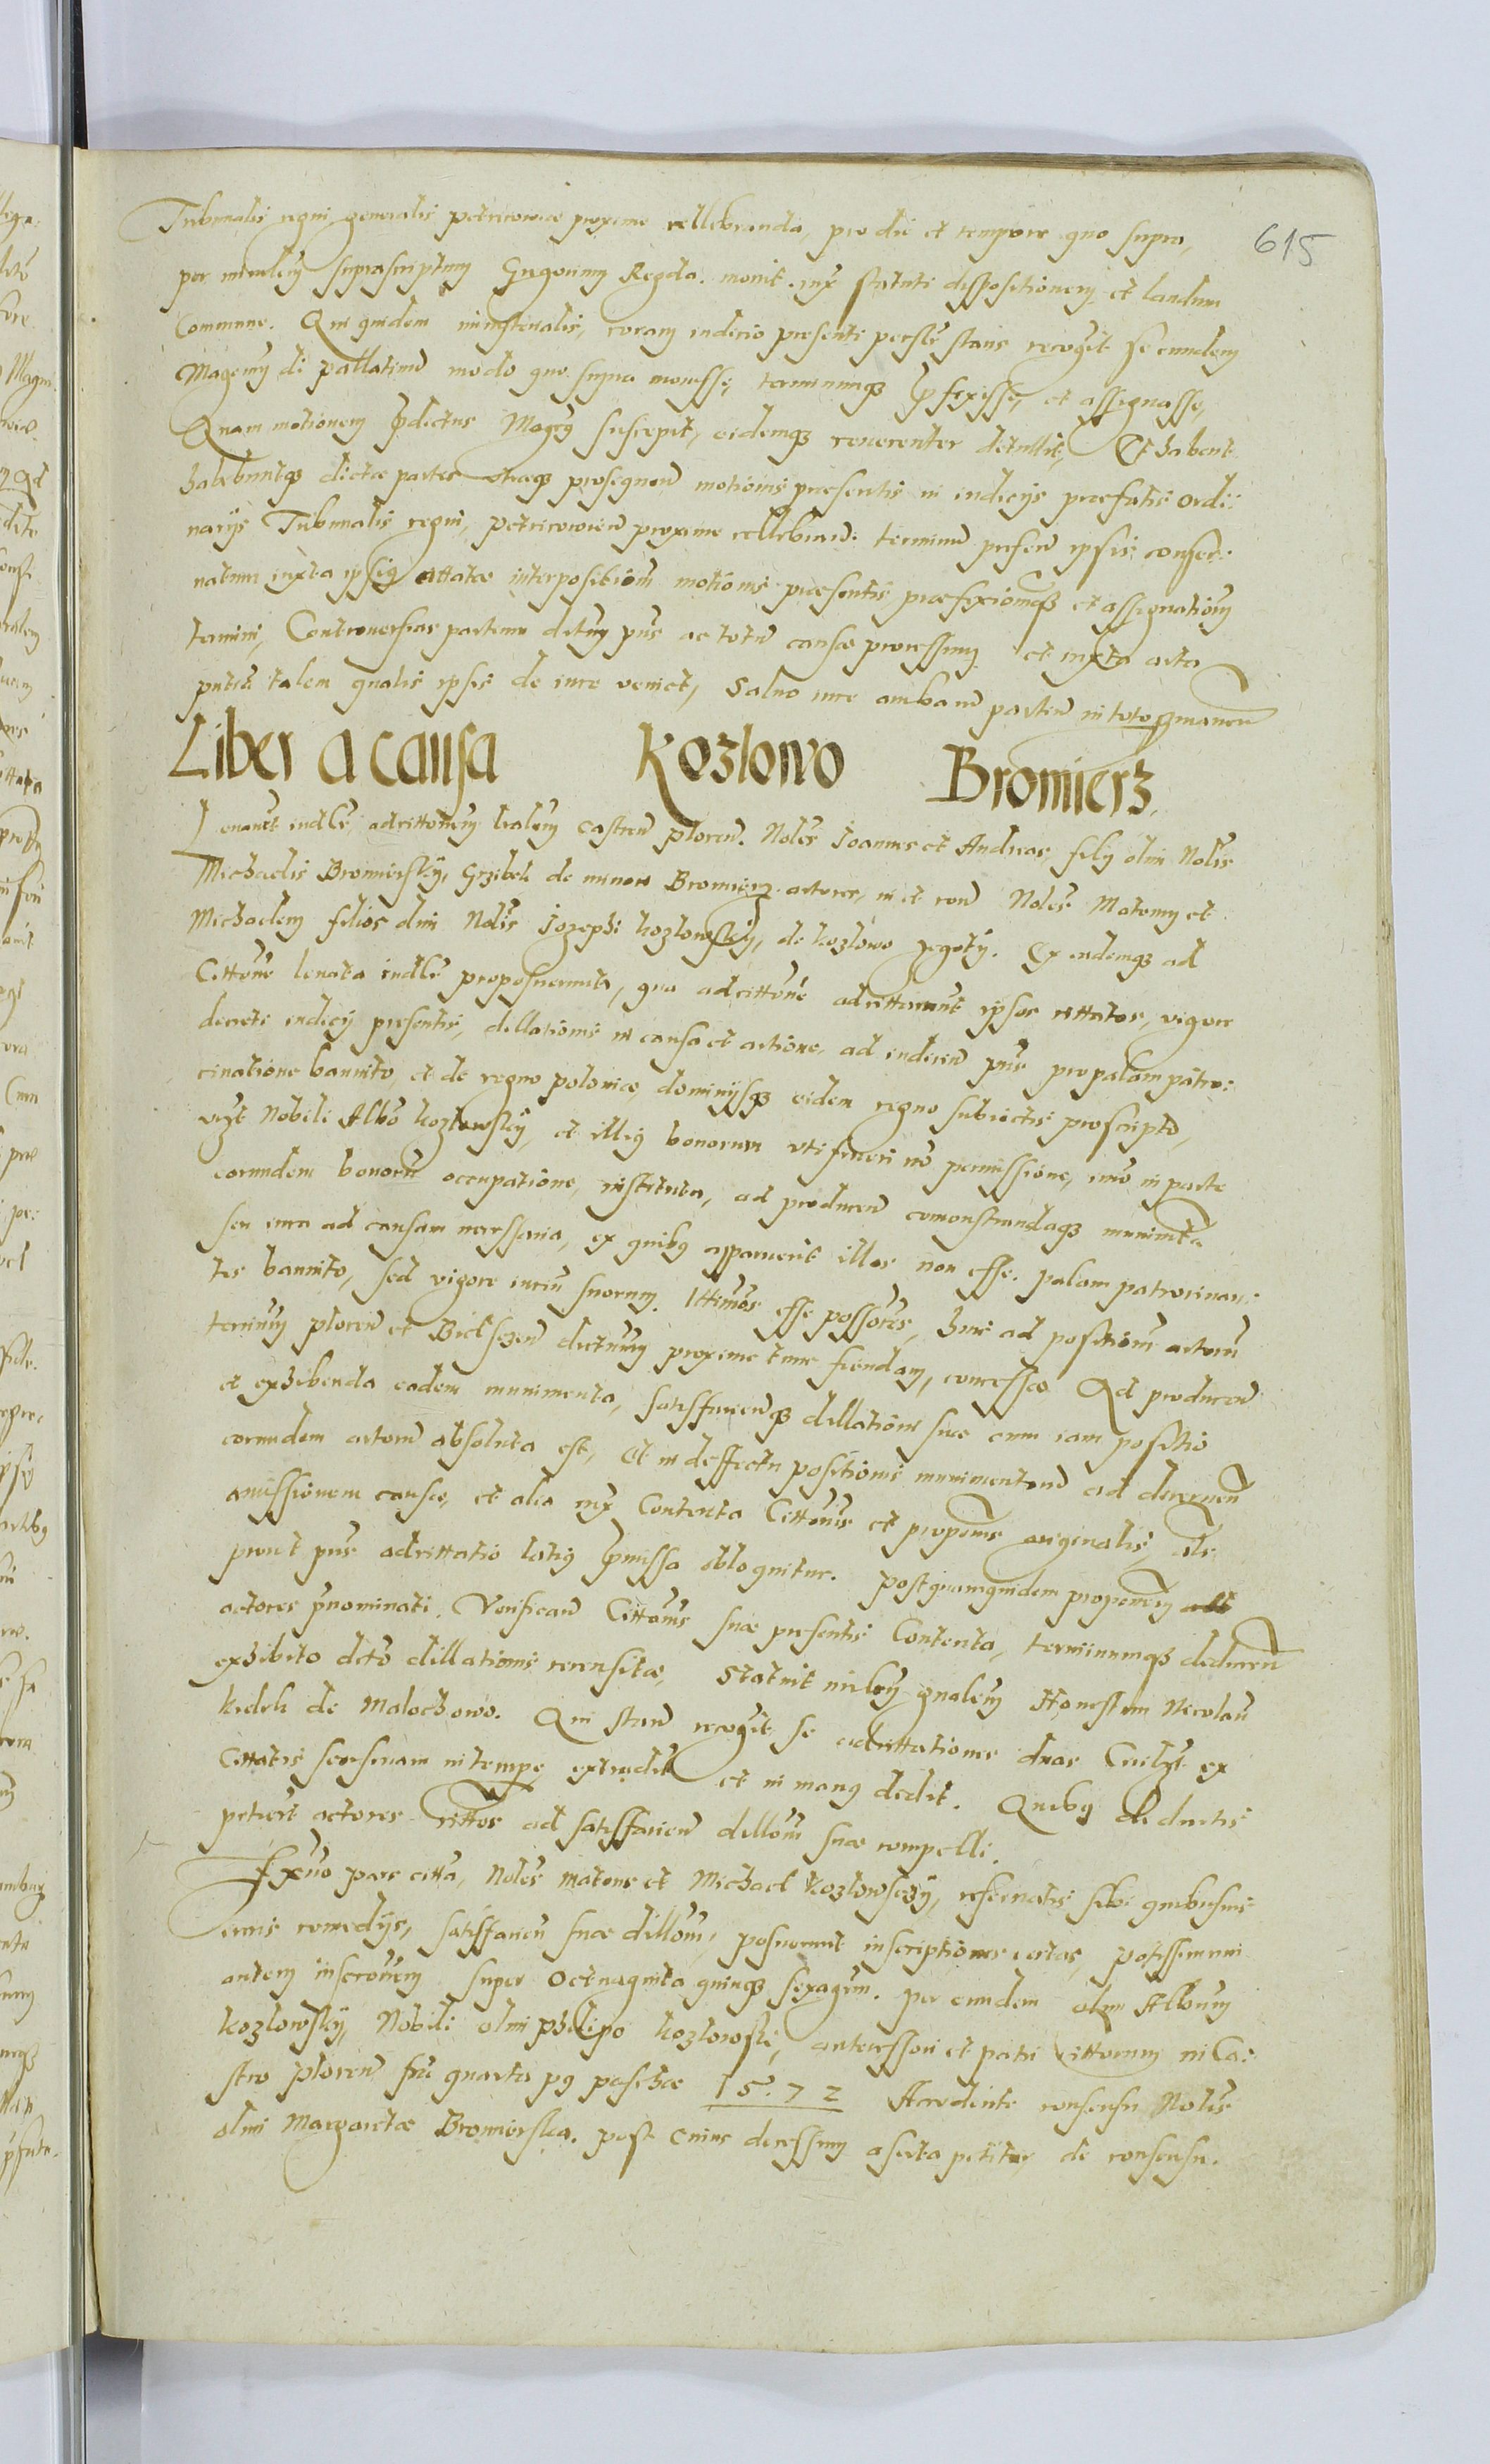 615
Tribunalis regni generalis petricoviae proxime cellebranda, pro die et tempore quo supra,
per mirlem suprascriptum Gregorium Regda. monit. inx statuti dispositionem et laudum
Commune. Qui quidem ministerialis, coram iudicio presenti perslr stans recogt se eundem
Magcum di pallatinu modo quo supra monuisse, terminumqz pfixisse, et assignasse,
Quam motionem pdictus Magcus suscepit, eidemqz reverenter detullit, Et habent
habebuntqz dictae partes utraqz prosequen motionis praesentis in iudicijs praefatis ordi:
narijs Tribunalis regni, petricovien proxime cellebran: terminu presen ipsis conser:
vatum iuxta ipsius attatae interpositiom motionis praesentis praefixiomqz et assignatiom
termini, Controversias partium ditum pns ac totu causae processum et iuxta acta
putru talem qualis ipsis de iure veniet, Salvo iure ambaru partiu in toto pmanen
Liber a causa Kozlowo Bromierz
Levavit indlr adcittonem lralem castren plocen. Nobles Joannes et Andreas, filij olim Noblis
Michaelis Bromiersky, Grzibek de minore Bromierz actores, in et con Nobles Matornum et
Michaelem filios olim Noblis Jozephi Kozlowsky, de Kozlowo zegoty. Ex eademqz ad
Cittone levata indlr proposuerunt, qua adcittone adcittarunt ipsos cittatos, vigore
decreti iudicij presentis, dillationis in causa et actione, ad iudiciu pns pro palam patro:
cinatione bannito, et de regno poloniae, dominijsqz eidem regno subiectis proscripto,
vizt Nobili Albo Kozlowsky, et illius bonorum uti frueri no permissione, imo in parte
eorundem bonoru occupatione, instituta, ad producen comonstrandaqz munimta
seu iura ad causam necessaria, ex quibus apparuerit illos non esse. palam patrocinan:
tes bannito, sed vigore iuriu suorum. Ittimos esse possores, hinc ad positiom actoru
terrium plocen et Bielscen dictuum proxime tunc fiendam, concessae Ad producen
et exhibenda eadem munimenta, satisfacienqz dillationi suae cum iam positio
eorundem actoru absoluta est, Et in deffectu positionis munimentoru ad decernen
amissionem causae, et alia inx Contenta Cittonis et proponis originalis, als
prout pns adcittatio latius pmissa obloquitur. Postquamquidem proponem
actores pnominati. Verifican Cittonis suae presentis Contenta, terminumqz deducen
exhibito dcto dillationis recensitae, Statuit mirlem gnalem Honestum Nicolau
Kidek de Malochowo. Qui stan recogt se adcittationes duas Cuilzt ex
Cittatis seorsivam in tempe extradit et in manus dedit. Quibus deductis
petiert actores cittos ad satisfacien dillom suae compelli.
Exno pars citta, Nobles Matous et Michael Kozlowsczy, reservatis sibi quibusvis
iuris remedijs, satisfacien suae dillom, posuerunt inscriptiones certas, potissimum
autem inscrovem super Octuaginta quinqz sexagen. per eundem olim Album
Kozlowsky, Nobili olim philipo Kozlowski, antecessori et patri cittorum in Ca:
stro plocen fria quarta ps paschae 1572 Accedente consensu Noblis
olim Margaretae Bromierska. post cuius decessum aserta petitur de consensu.